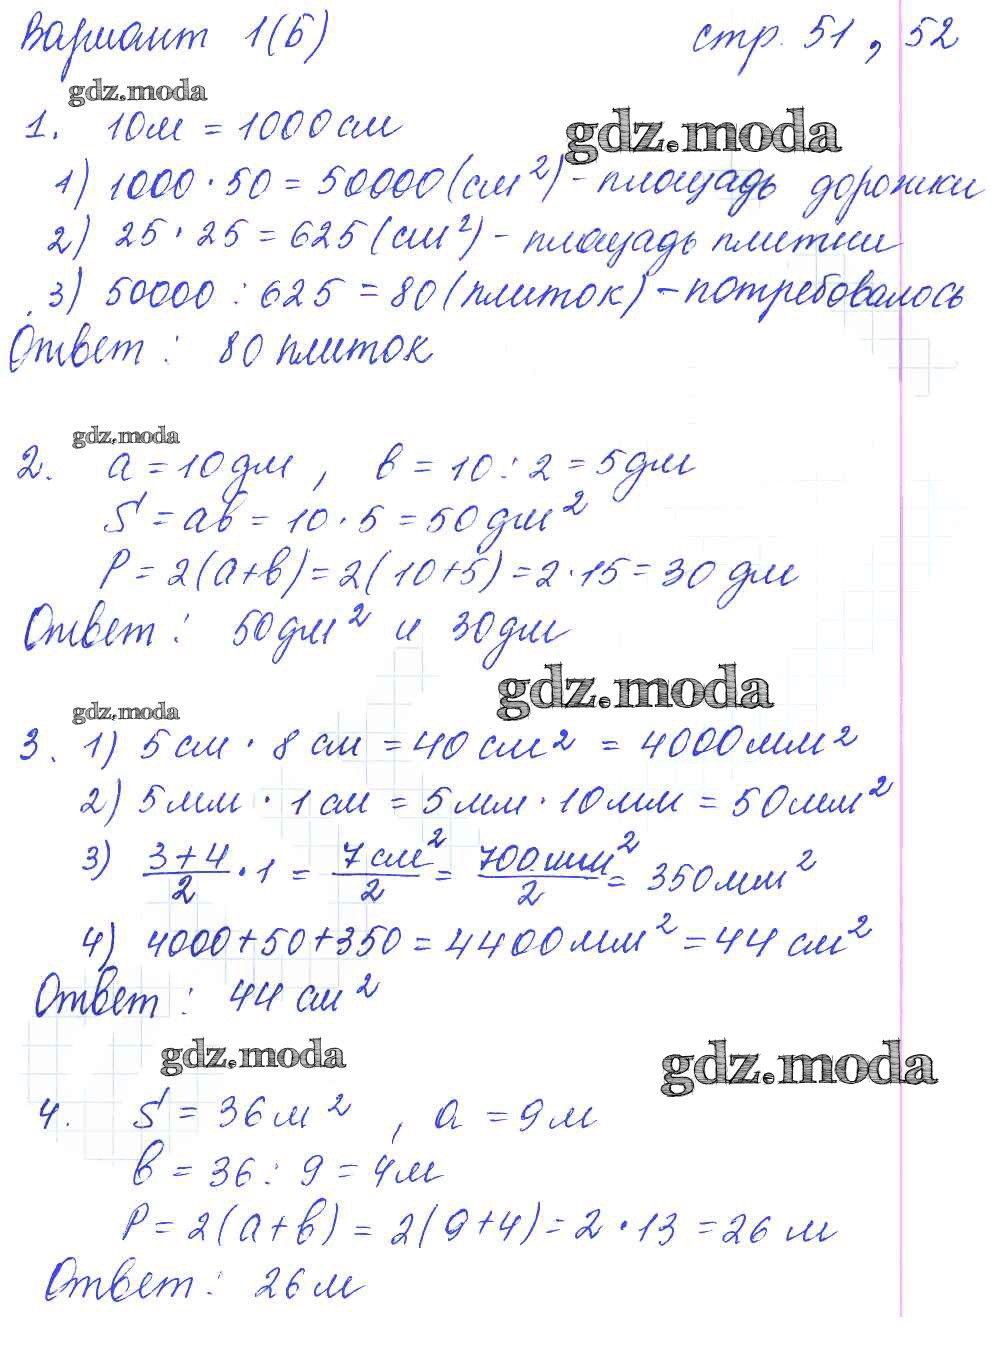 Вариант 1(Б) стр. 51, 52
gdz.moda
1. 10м = 1000см
gdz.moda
1) 1000 · 50 = 50000(см²) - площадь дорожки
2) 25 · 25 = 625(см²) - площадь плитки
3) 50000 : 625 = 80(плиток) - потребовалось
Ответ: 80 плиток
gdz.moda
2. a = 10дм, b = 10 : 2 = 5дм
S = ab = 10 · 5 = 50дм²
P = 2(a+b) = 2(10+5) = 2·15 = 30 дм
Ответ: 50дм² и 30дм
gdz.moda
gdz.moda
3. 1) 5 см · 8 см = 40 см² = 4000мм²
2) 5мм · 1 см = 5мм · 10мм = 50мм²
3) (3+4)/2 · 1 = 7см²/2 = 700мм²/2 = 350мм²
4) 4000+50+350 = 4400мм² = 44 см²
Ответ: 44 см²
gdz.moda
gdz.moda
4. S = 36м², a = 9м
b = 36 : 9 = 4м
P = 2(a+b) = 2(9+4) = 2 · 13 = 26 м
Ответ: 26м